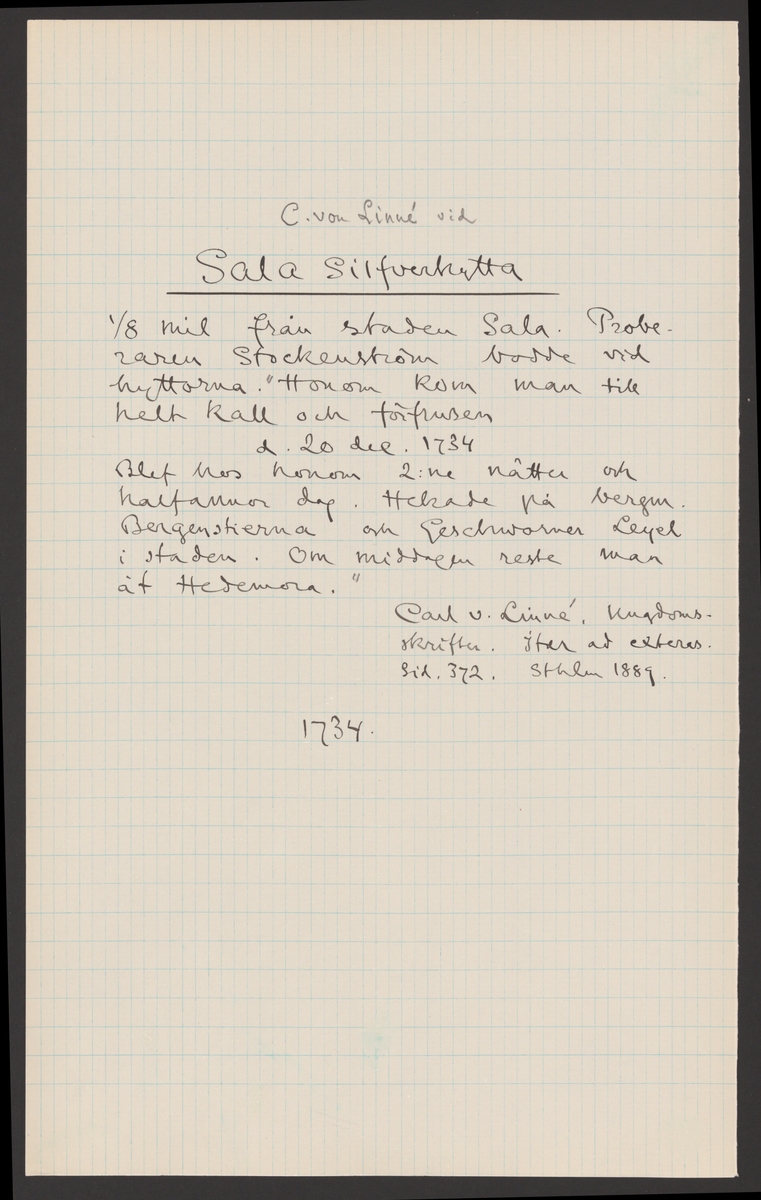 C. von Linné vid
Sala Silfverhytta
1/8 mil från staden Sala. Probe-
raren Stockenström bodde vid
hyttorna. "Honom kom man till
helt kall och förfrusen
d. 20 dec. 1734
Blef hos honom 2:ne nätter och
halfannor dag. Hekade på bergm.
Bergenstierna och Geschworner Leyel
i staden. Om middagen reste man
åt Hedemora."
Carl v. Linné, Ungdoms-
skrifter. Iter ad exteros.
Sid. 372. Sthlm 1889.
1734.